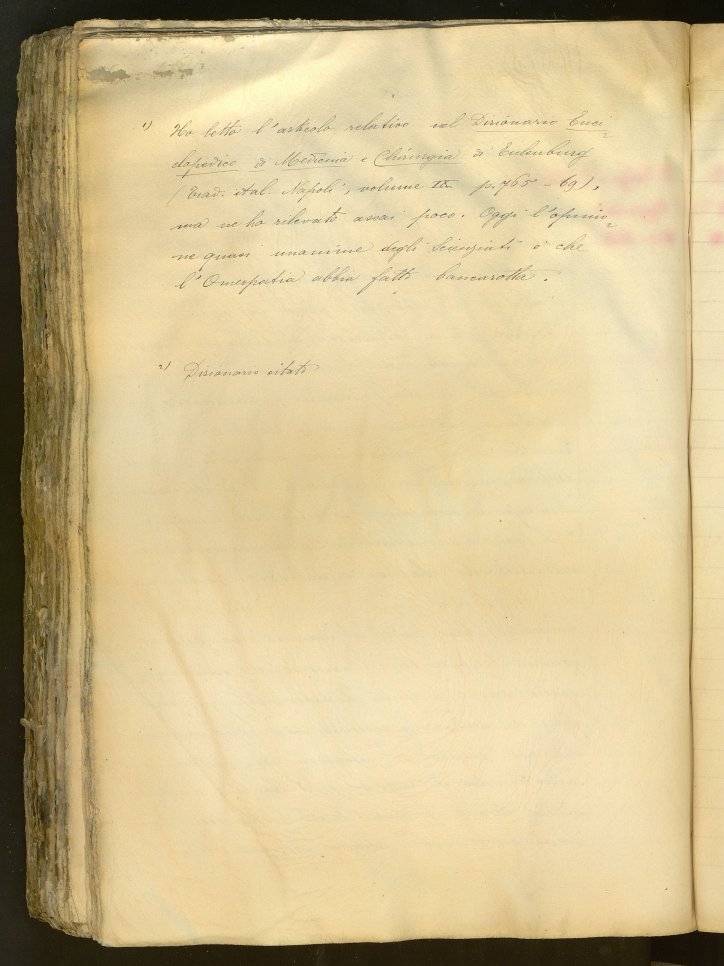 1) Ho letto l'articolo relativo nel Dizionario Enci=
clopedico di Medicina e Chirurgia di Eulenburg
(Trad. ital. Napoli, volume IX p. 765-69),
ma ne ho rilevato assai poco. Oggi l'opinio=
ne quasi unanime degli Scienziati è che
l'Omeopatia abbia fatto bancarotta.
2) Dizionario citato